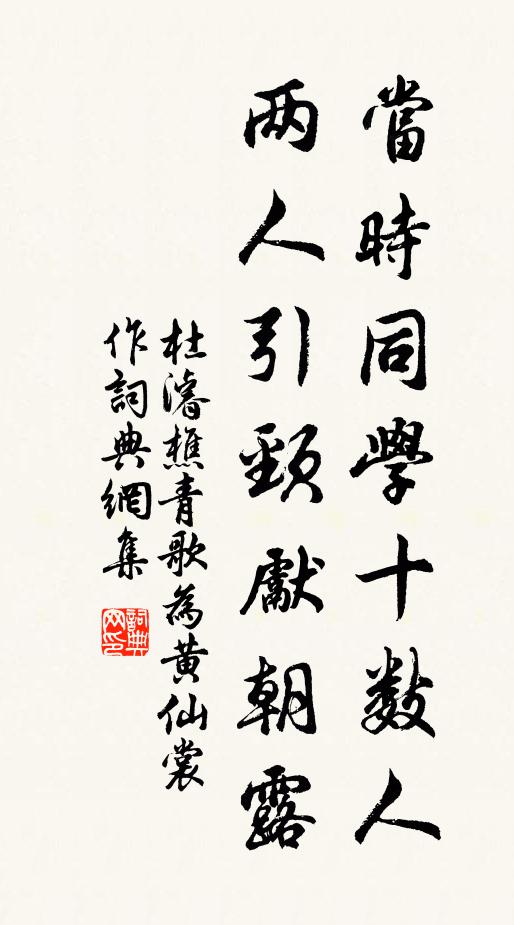 當時同學十數人
两人引頸獻朝露
杜濬樵青歌為黄仙裳
作詞典網集
詞典
网印